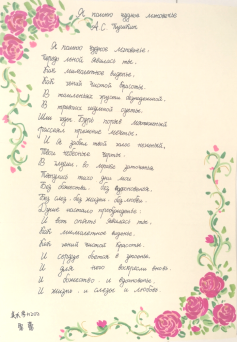 Я помню чудное мгновенье
А.С. Пушкин
Я помню чудное мгновенье:
Передо мной явилась ты,
Как мимолетное виденье,
Как гений чистой красоты.
В томленьях грусти безнадежной,
В тревогах шумной суеты,
Шли годы. Бурь порыв мятежный
Рассеял прежние мечты,
И я забыл твой голос нежный,
Твои небесные черты.
В глуши, во мраке заточенья
Тянулись тихо дни мои
Без божества, без вдохновенья,
Без слез, без жизни, без любви.
Душе настало пробужденье:
И вот опять явилась ты,
Как мимолетное виденье,
Как гений чистой красоты.
И сердце бьется в упоенье,
И для него воскресли вновь
И божество, и вдохновенье,
И жизнь, и слезы, и любовь.